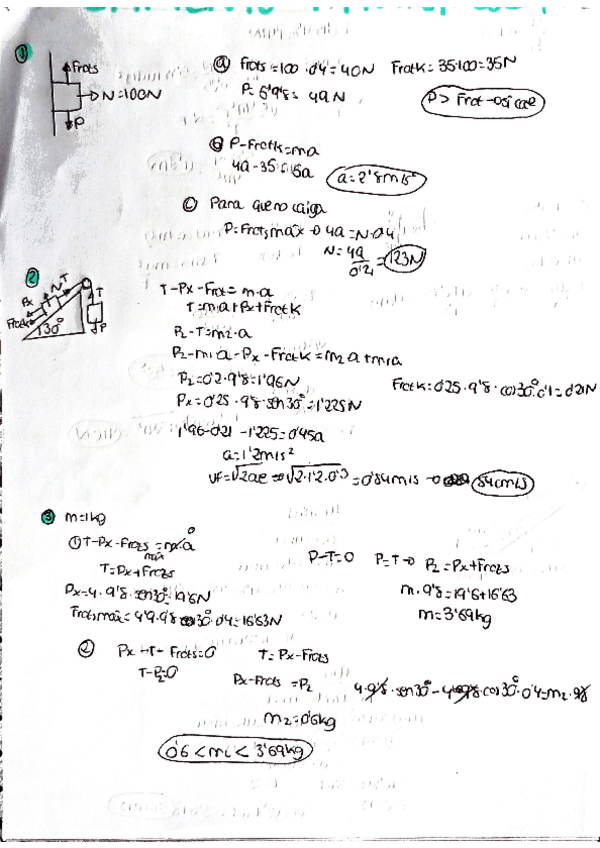 ①
Frots
N=100N
P
ⓐ Frots =100 · 0'4 = 40N FrotK = 35·100=35N
P= 5·9'8 = 49N
P> Frot → sí cae
ⓑ P-FrotK=ma
49-35=5a
a=2'8m/s²
ⓒ Para que no caiga
P=Frotsmáx → 49=N·0'4
N= 49/0'4 = 123N
②
N T T
Px
FrotK
30°
P
T-Px-Frot= m·a
T=m1a+Px+FrotK
P2-T=m2·a
P2-m1a-Px-FrotK=m2a+m1a
P2=0'2·9'8=1'96N
FrotK=0'25·9'8·cos30°·0'1=0'21N
Px=0'25·9'8·sen30°=1'225N
1'96-0'21-1'225=0'45a
a=1'2m/s²
VF=√2ae → √2·1'2·0'3 =0'84m/s → 84cm/s
③ m=1kg
① T-Px-Frots máx =m·a 0
P-T=0 P=T → P2=Px+Frots
T=Px+Frots
m·9'8=19'6+16'63
Px=4·9'8·sen30°=19'6N
m=3'69kg
Frotsmáx=4·9'8·cos30°·0'4=16'63N
② Px-T-Frots=0 T=Px-Frots
T-P2=0
Px-Frots =P2 4·9'8·sen30°-4·9'8·cos30°·0'4=m2·9'8
m2=0'6kg
0'6 < m < 3'69kg